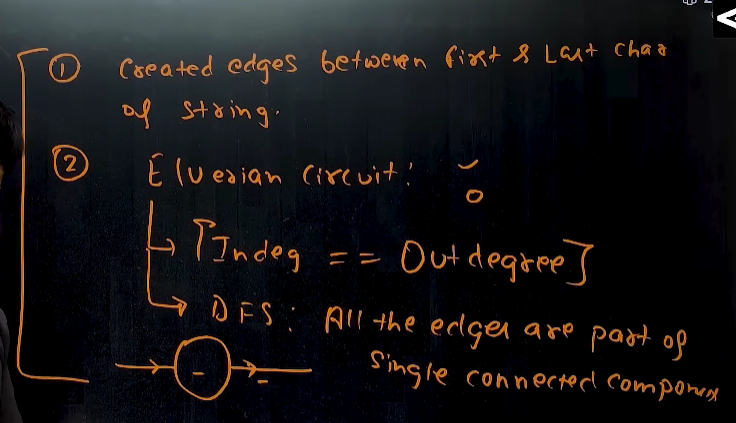 ① Created edges between first & Last char
of string.
② Eluerian Circuit:
→ [Indeg == Outdegree]
→ DFS: All the edges are part of
Single connected component